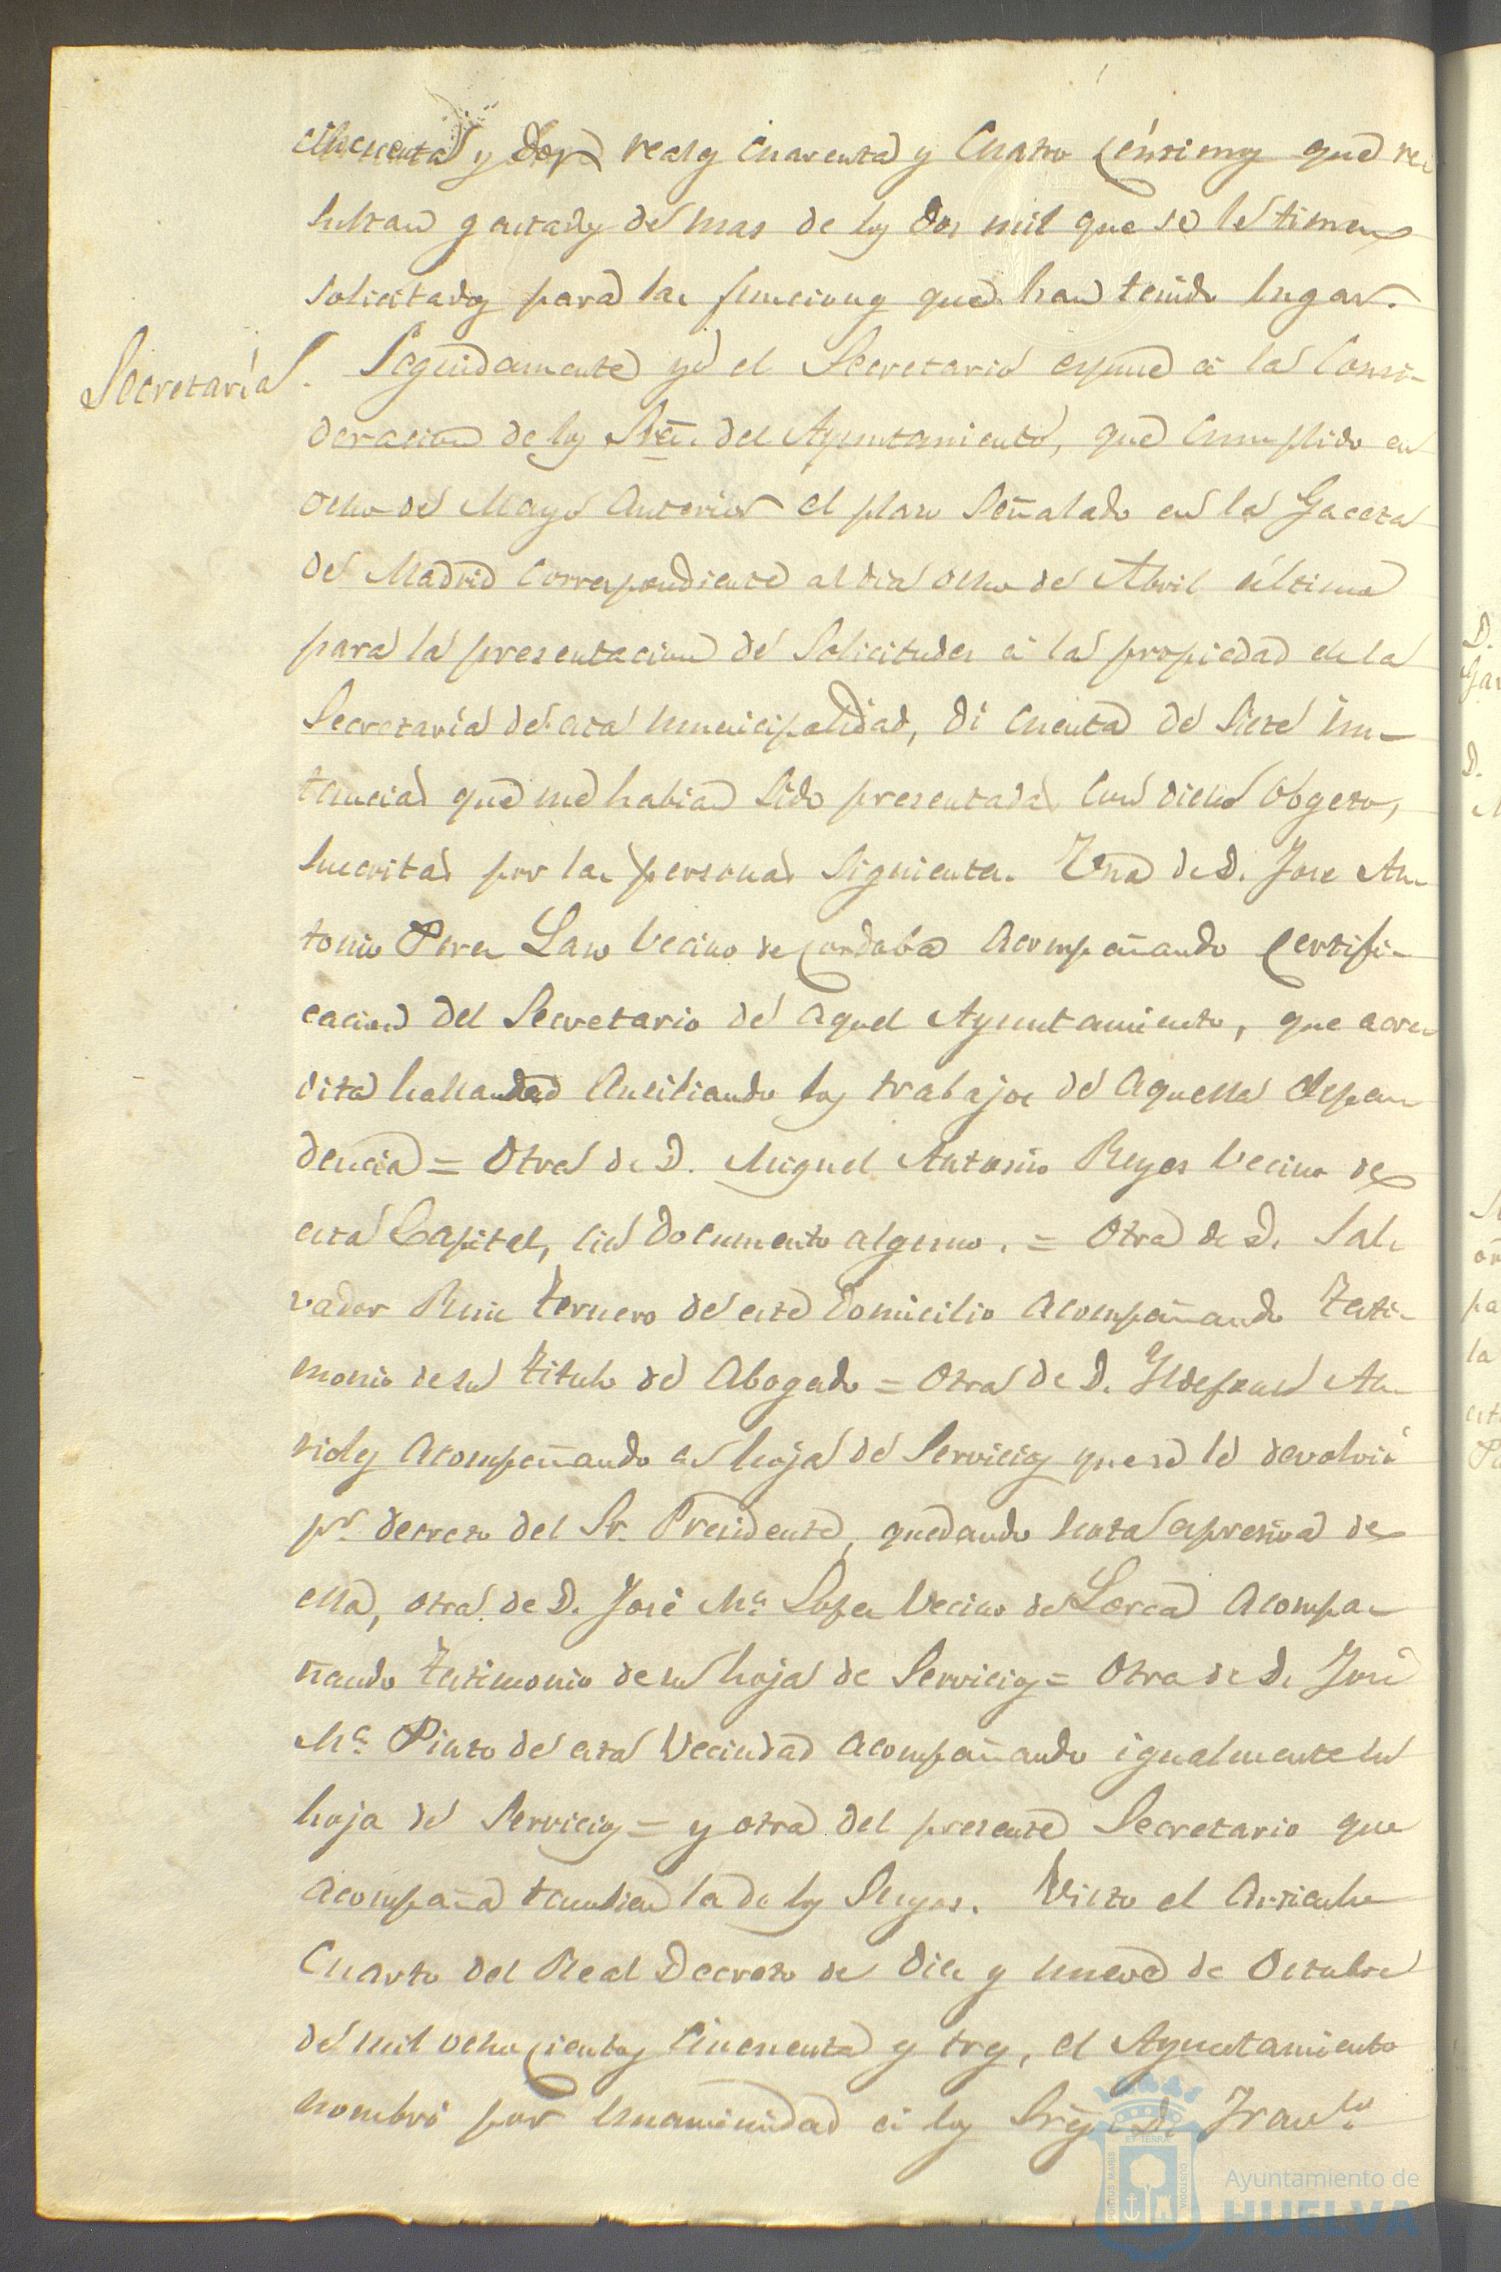 cincuenta y dos reales cuarenta y cuatro céntimos que re
sultan gastados de mas de los dos mil que se le tienen
solicitados para las funciones que han tenido lugar.
Secretaría. Seguidamente yo el Secretario espuse á la consi-
deracion de los Sres. del Ayuntamiento, que cumplido en
ocho de Mayo anterior el plazo señalado en la Gaceta
de Madrid correspondiente al dia ocho de Abril último
para la presentacion de solicitudes á la propiedad de la
Secretaría de esta municipalidad, di cuenta de siete ins-
tancias que me habian sido presentadas con dicho obgeto,
suscritas por las personas siguientes. Una de D. Jose An
tonio Perez Laso vecino de Cordoba acompañando certifi-
cacion del Secretario de aquel Ayuntamiento, que acre
dita hallandose ausiliando los trabajos de aquella depen
dencia = Otra de D. Miguel Antonio Reyes vecino de
esta Capital, sin documento alguno. = Otra de D. Sal-
vador Ruiz Ternero de este domicilio acompañando testi-
monio de su titulo de Abogado = Otra de D. Yldefonso
acompañando su hoja de servicios que se le devolvió
pr. decreto del Sr. Presidente, quedando nota espresiva de
ella, otra de D. José Ma. Lopez vecino de Lorca acompa-
ñando testimonio de su hoja de servicios = Otra de D. José
Ma. Pinto de esta vecindad acompañando igualmente su
hoja de servicios = y otra del presente Secretario que
acompaña tambien la de los suyos. Visto el articulo
cuarto del Real Decreto de diez y nueve de Octubre
de mil ochocientos cincuenta y tres, el Ayuntamiento
nombró por unanimidad á los Sres. D. Franco.
Ayuntamiento de
HUELVA
PORTUS MARIS
ET TERRAE
CUSTODIA